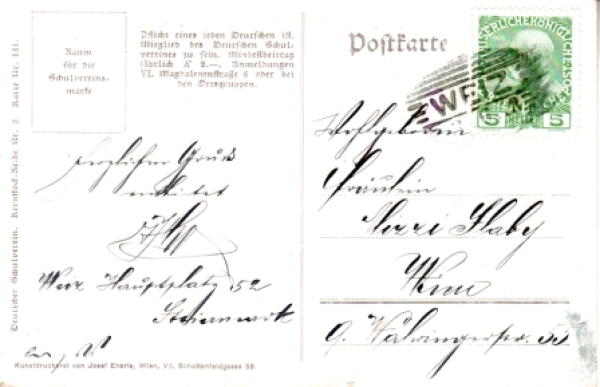 Deutscher Schulverein. Kernstock-Reihe Nr. 2 Karte Nr. 141.
Raum
für die
Schulvereins-
marke
Pflicht eines jeden Deutschen ist,
Mitglied des Deutschen Schul-
vereines zu sein. Mindestbeitrag
jährlich K 2.—. Anmeldungen
VI. Magdalenenstraße 6 oder bei
den Ortsgruppen.
Postkarte
WEIZ
5 HELLER 5
Herzlichen Gruß
Weiz Hauptplatz 52
Steiermark
Wohlgeboren
Fräulein
Mizzi Slaby
Wien
9. Währingerstr. 53
Kunstdruckerei von Josef Eberle, Wien, VII, Schottenfeldgasse 38.